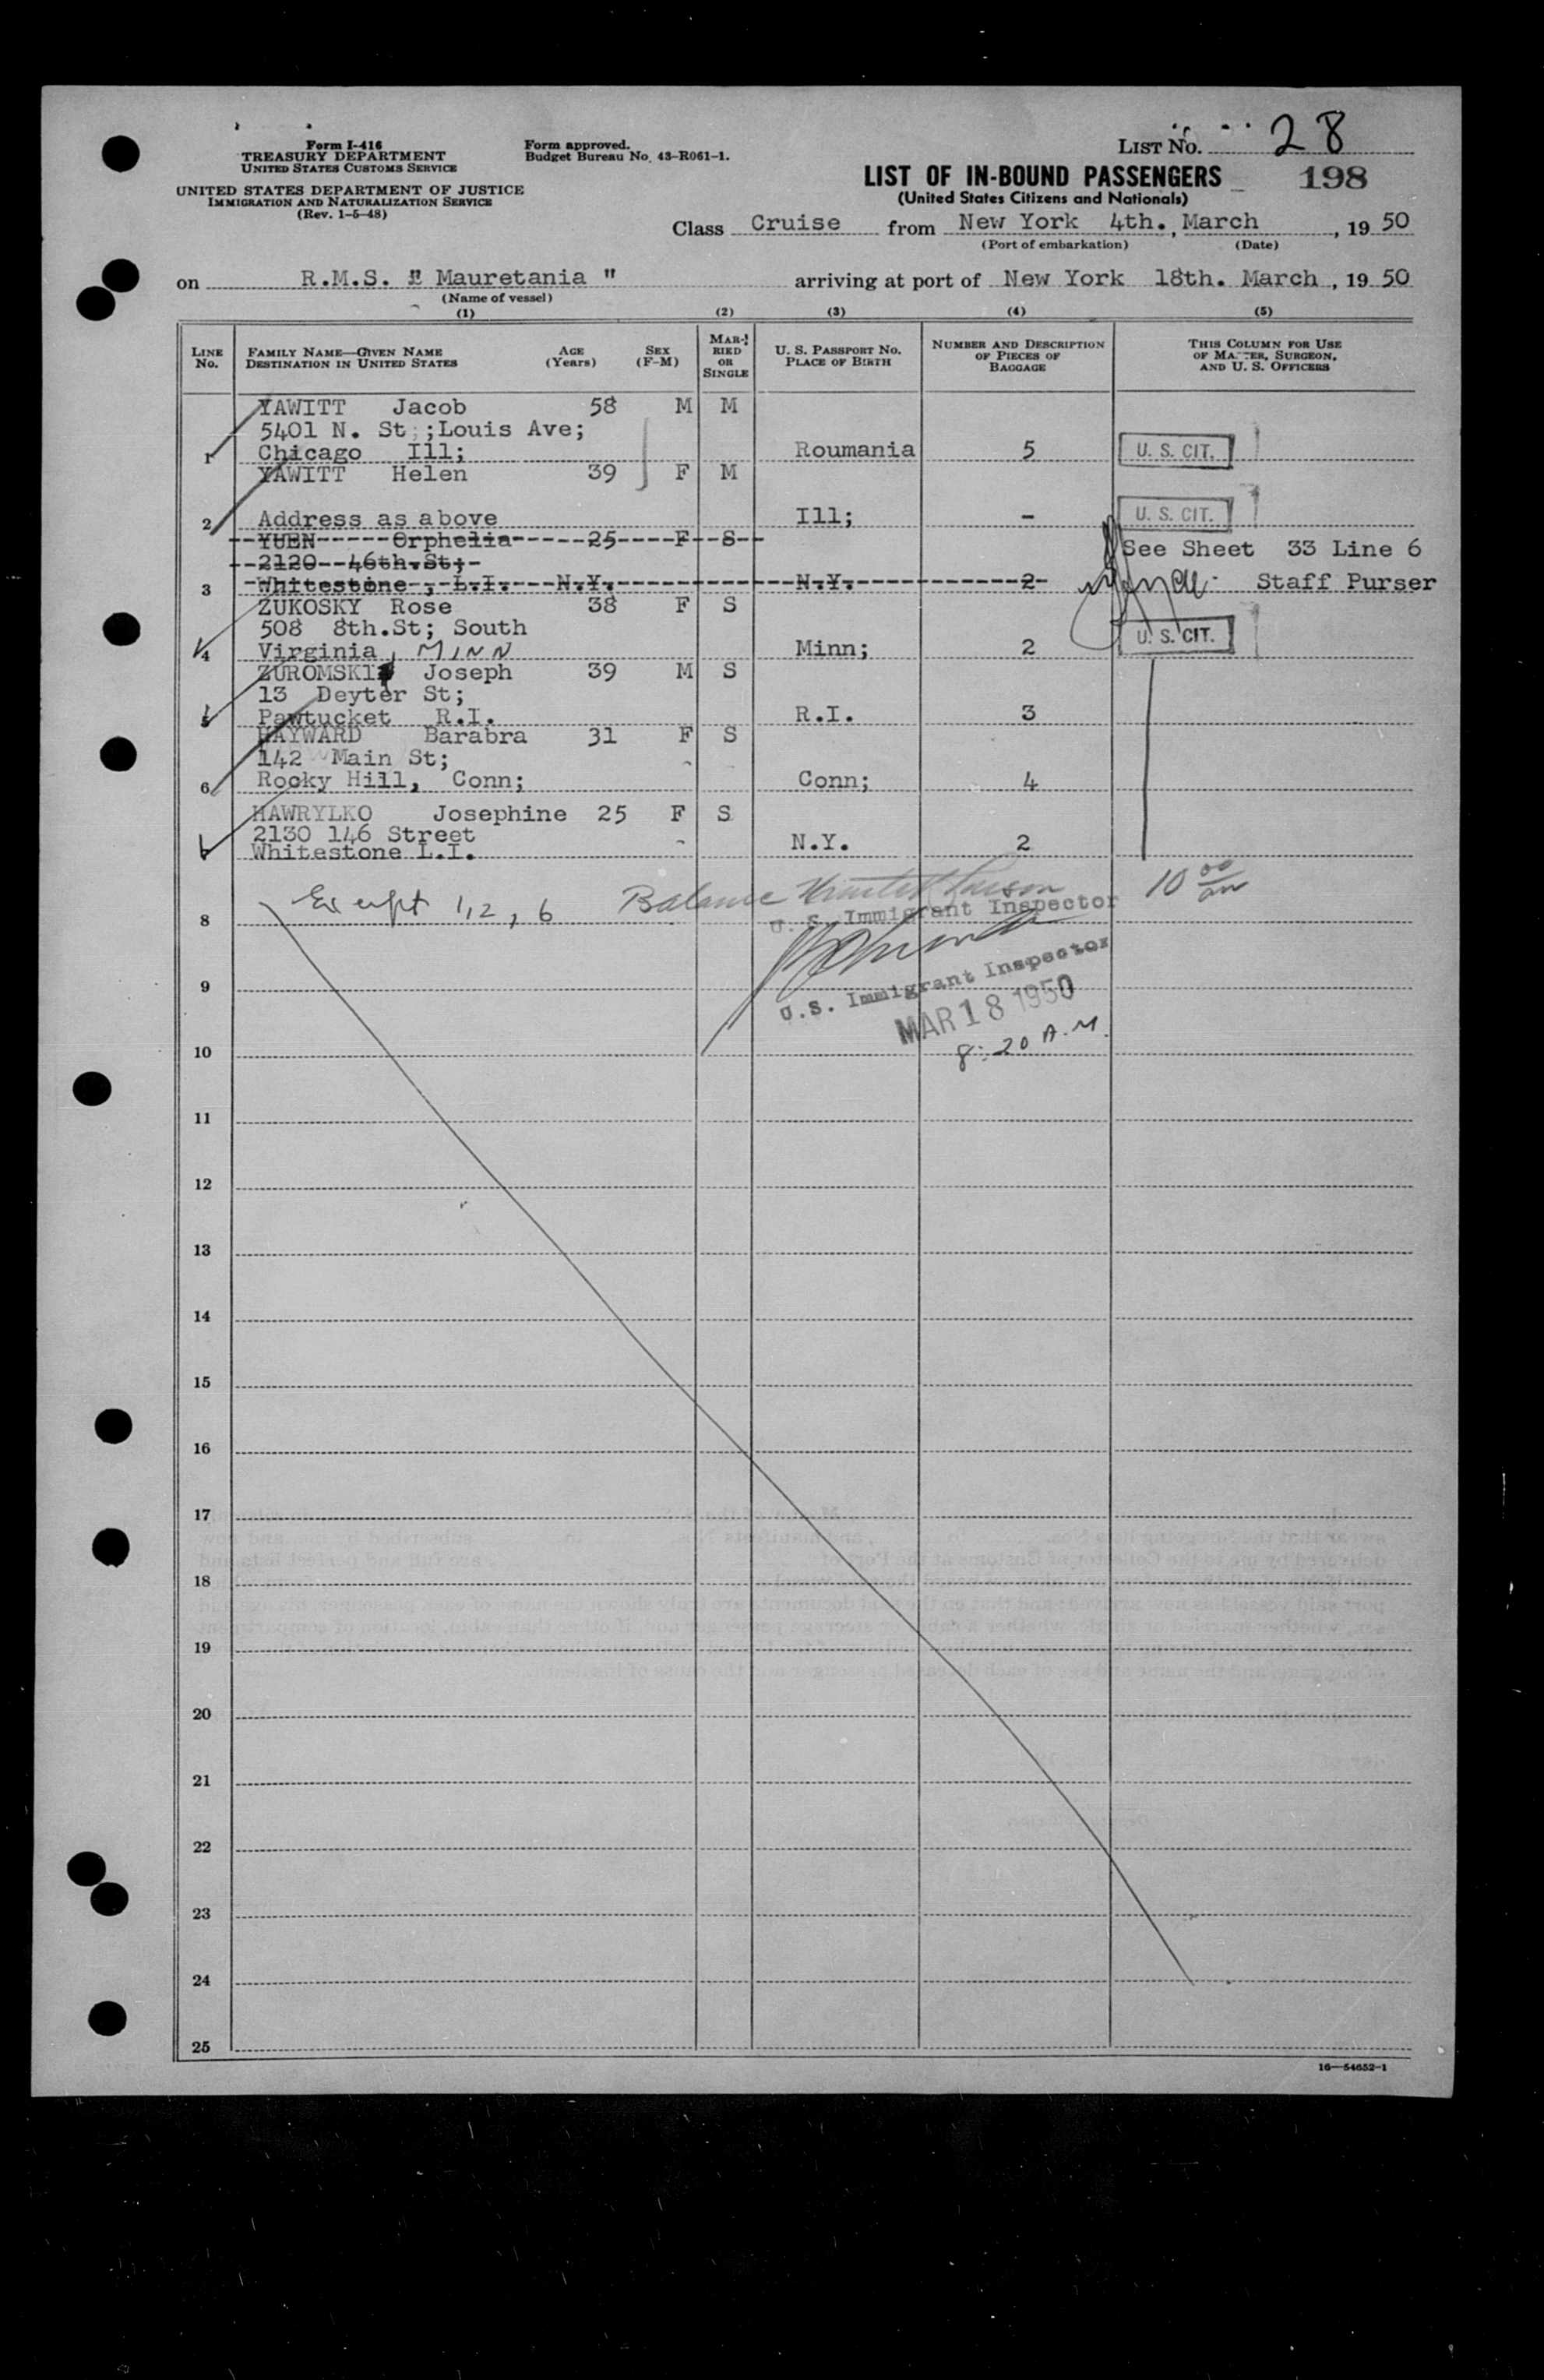 Form I-416
TREASURY DEPARTMENT
UNITED STATES CUSTOMS SERVICE
UNITED STATES DEPARTMENT OF JUSTICE
IMMIGRATION AND NATURALIZATION SERVICE
(Rev. 1-5-48)
Form approved.
Budget Bureau No. 43-R061-1.
LIST NO. 28
LIST OF IN-BOUND PASSENGERS 198
(United States Citizens and Nationals)
Class Cruise from New York 4th., March, 1950
(Port of embarkation) (Date)
on R.M.S. " Mauretania " arriving at port of New York 18th. March, 1950
(Name of vessel)
(1) (2) (3) (4) (5)
LINE No.
FAMILY NAME—GIVEN NAME
DESTINATION IN UNITED STATES
AGE (Years)
SEX (F-M)
MARRIED OR SINGLE
U. S. PASSPORT NO.
PLACE OF BIRTH
NUMBER AND DESCRIPTION OF PIECES OF BAGGAGE
THIS COLUMN FOR USE OF MASTER, SURGEON, AND U. S. OFFICERS
YAWITT Jacob 58 M M
5401 N. St ;Louis Ave;
1 Chicago Ill; Roumania 5 U. S. CIT.
YAWITT Helen 39 F M
2 Address as above Ill; - U. S. CIT.
YUEN Orphelia 25 F S See Sheet 33 Line 6
2120 46th.St;
3 Whitestone , L.I. N.Y. N.Y. 2 Staff Purser
ZUKOSKY Rose 38 F S
508 8th.St; South
4 Virginia, MINN Minn; 2 U. S. CIT.
ZUROMSKI Joseph 39 M S
13 Deyter St;
5 Pawtucket R.I. R.I. 3
HAYWARD Barabra 31 F S
142 Main St;
6 Rocky Hill, Conn; Conn; 4
HAWRYLKO Josephine 25 F S
2130 146 Street
Whitestone L.I. N.Y. 2
Except 1, 2, 6 Balance 10 00 am
8 U. S. Immigrant Inspector
9 U.S. Immigrant Inspector
MAR 18 1950
10 8:20 A.M.
11
12
13
14
15
16
17
18
19
20
21
22
23
24
25
16—54652-1